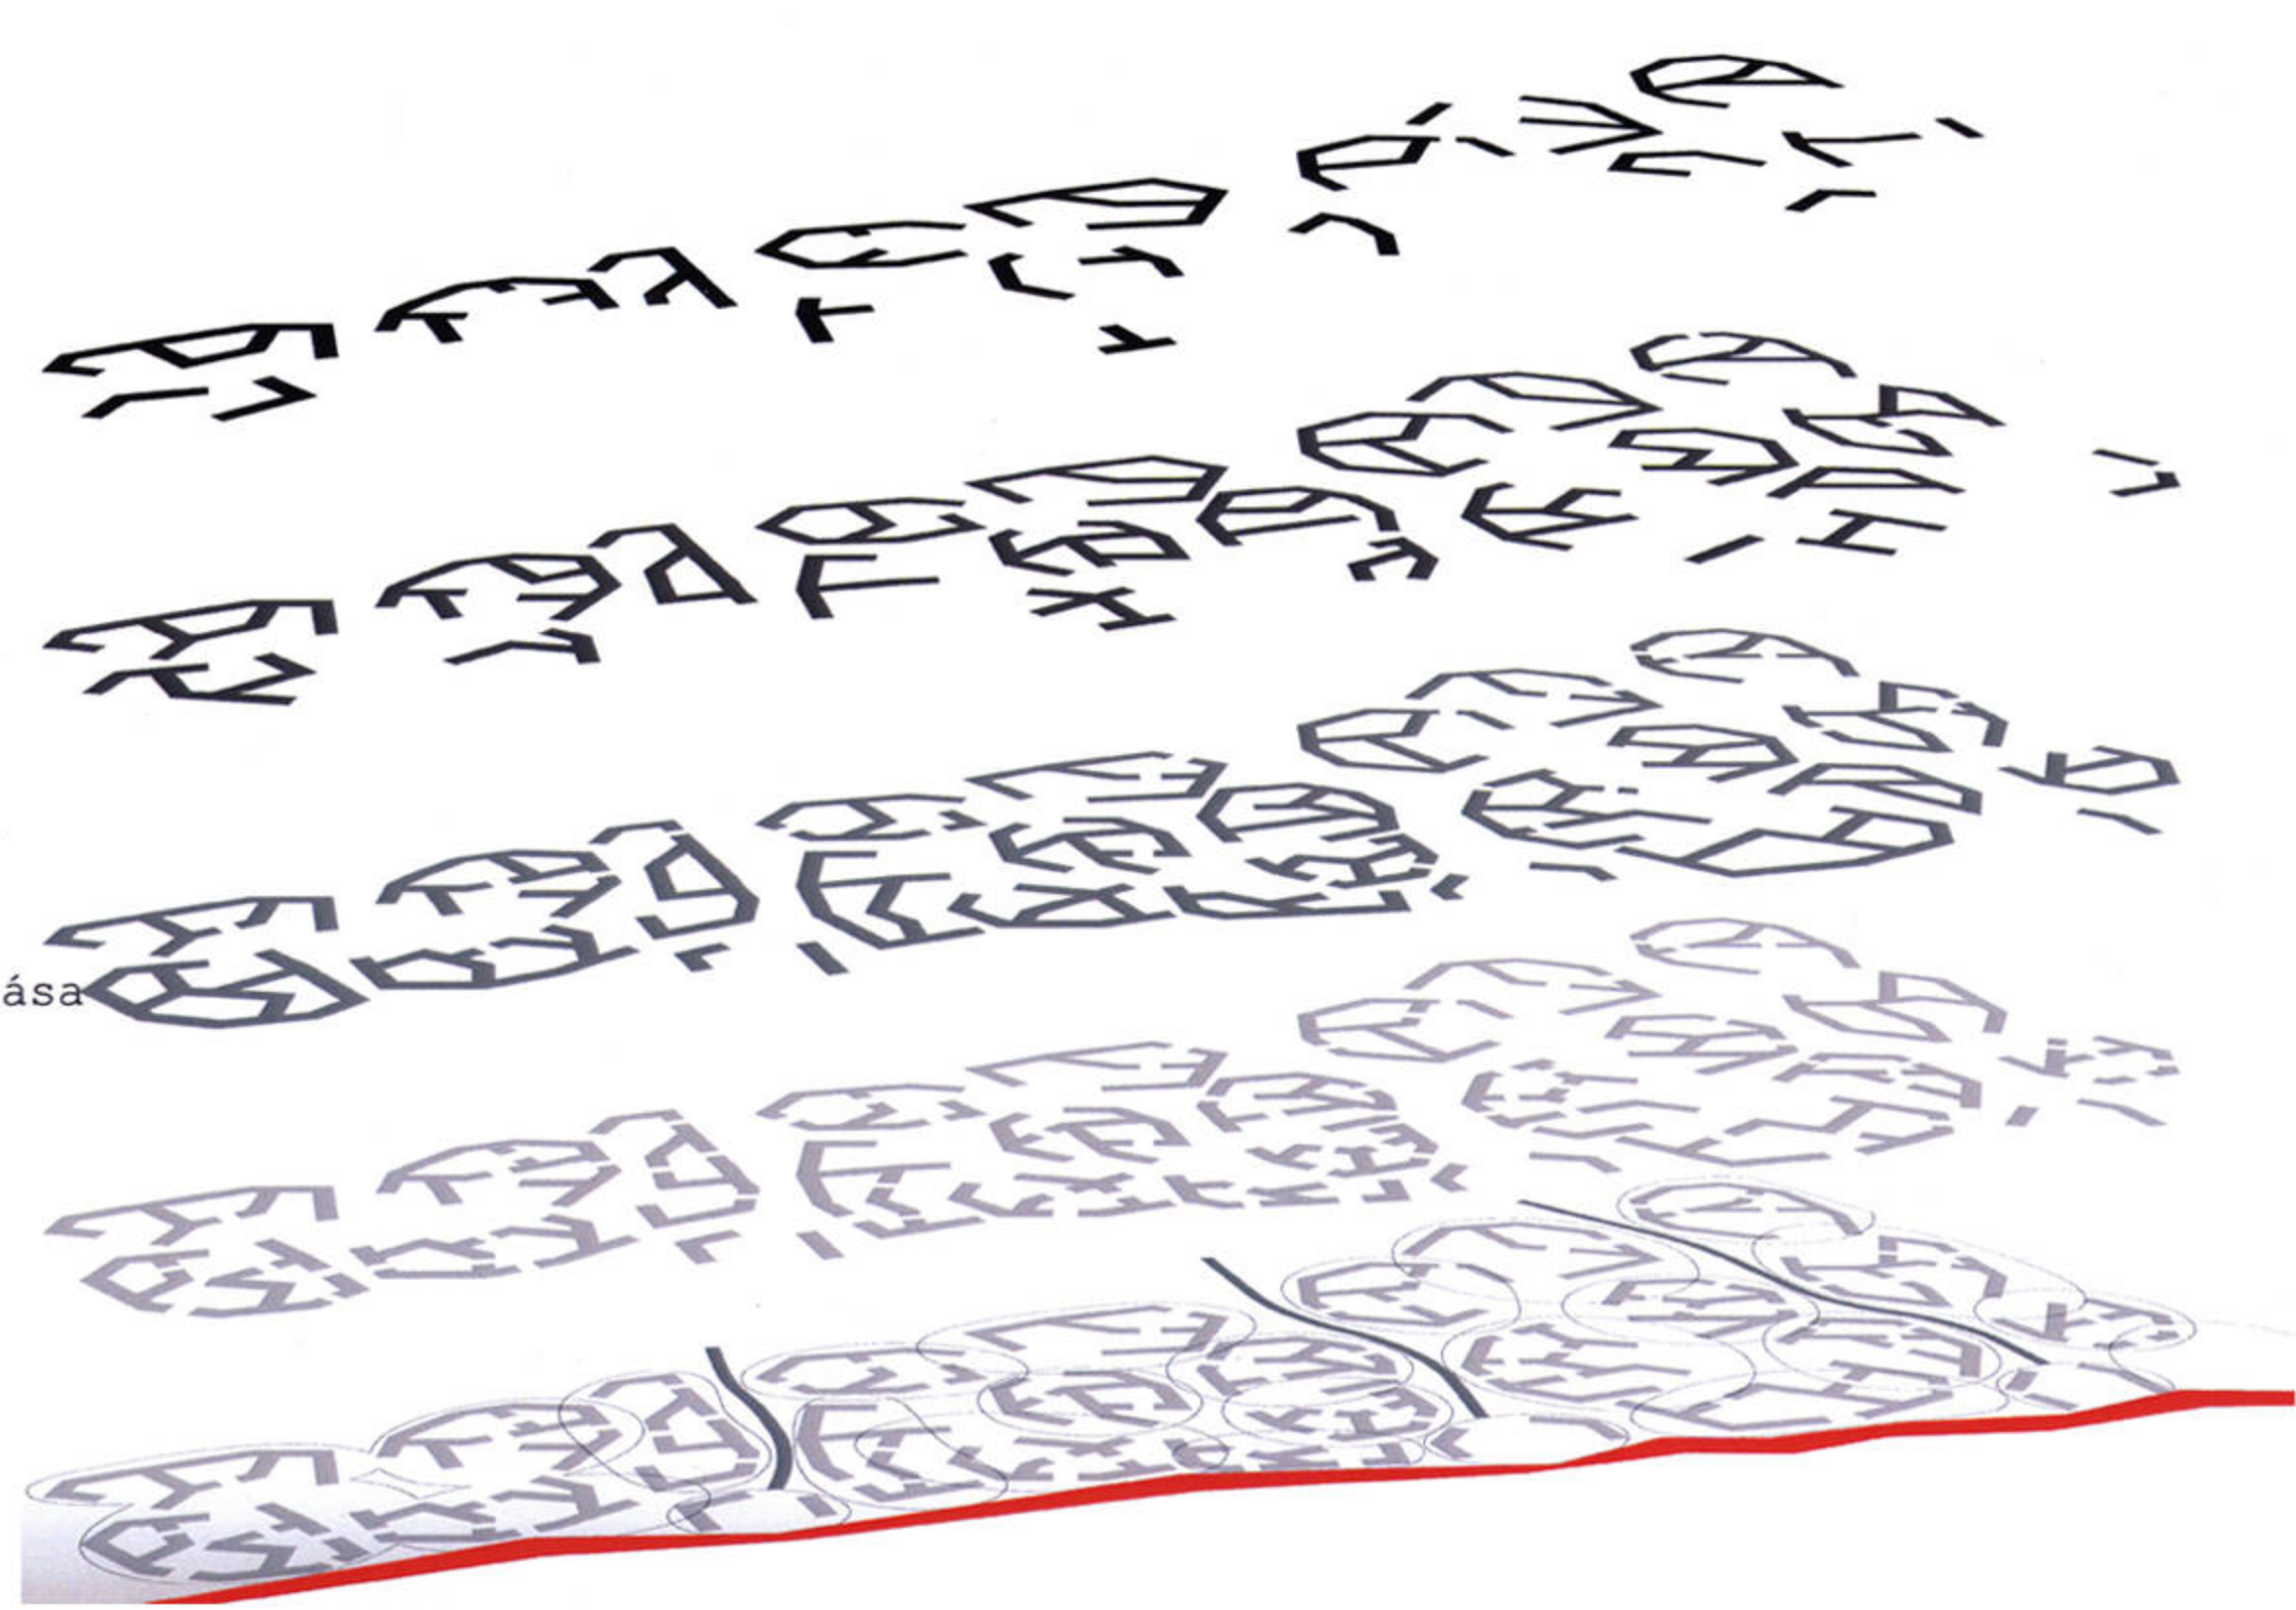 ása